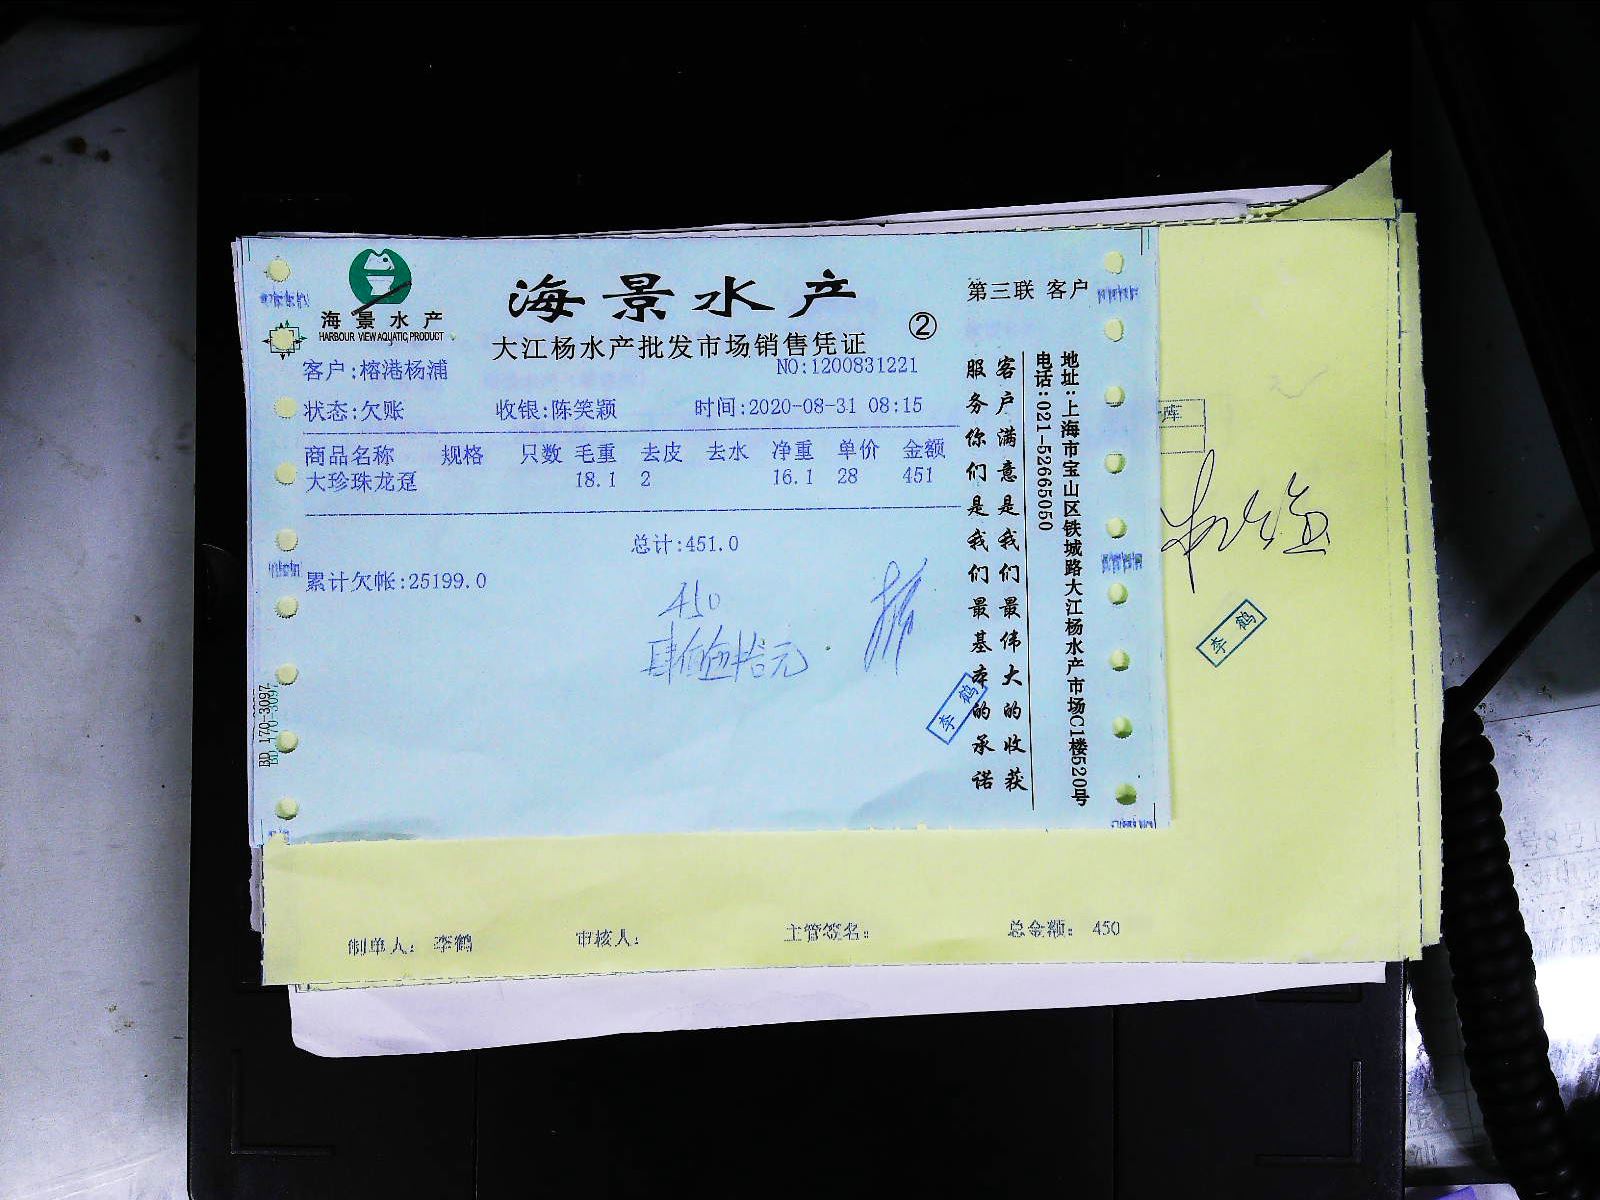 海景水产
HARBOUR VIEW AQUATIC PRODUCT
海景水产
第三联 客户
大江杨水产批发市场销售凭证 ②
客户:榕港杨浦 NO:1200831221
状态:欠账 收银:陈笑颖 时间:2020-08-31 08:15
商品名称 规格 只数 毛重 去皮 去水 净重 单价 金额
大珍珠龙趸 18.1 2 16.1 28 451
总计:451.0
累计欠帐:25199.0
450
肆佰伍拾元
地址:上海市宝山区铁城路大江杨水产市场C1楼520号
电话:021-52665050
客户满意是我们最伟大的收获
服务你们是我们最基本的承诺
李鹤
BD 170-3097
BD 170-3097
库
李鹤
制单人: 李鹤 审核人: 主管签名: 总金额: 450